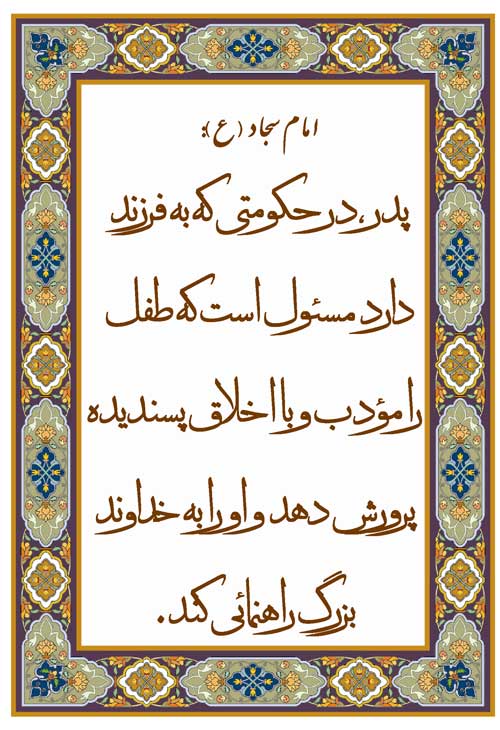 امام سجاد (ع):
پدر، در حکومتی که به فرزند
دارد مسئول است که طفل
را مؤدب و با اخلاق پسندیده
پرورش دهد و او را به خداوند
بزرگ راهنمائی کند.